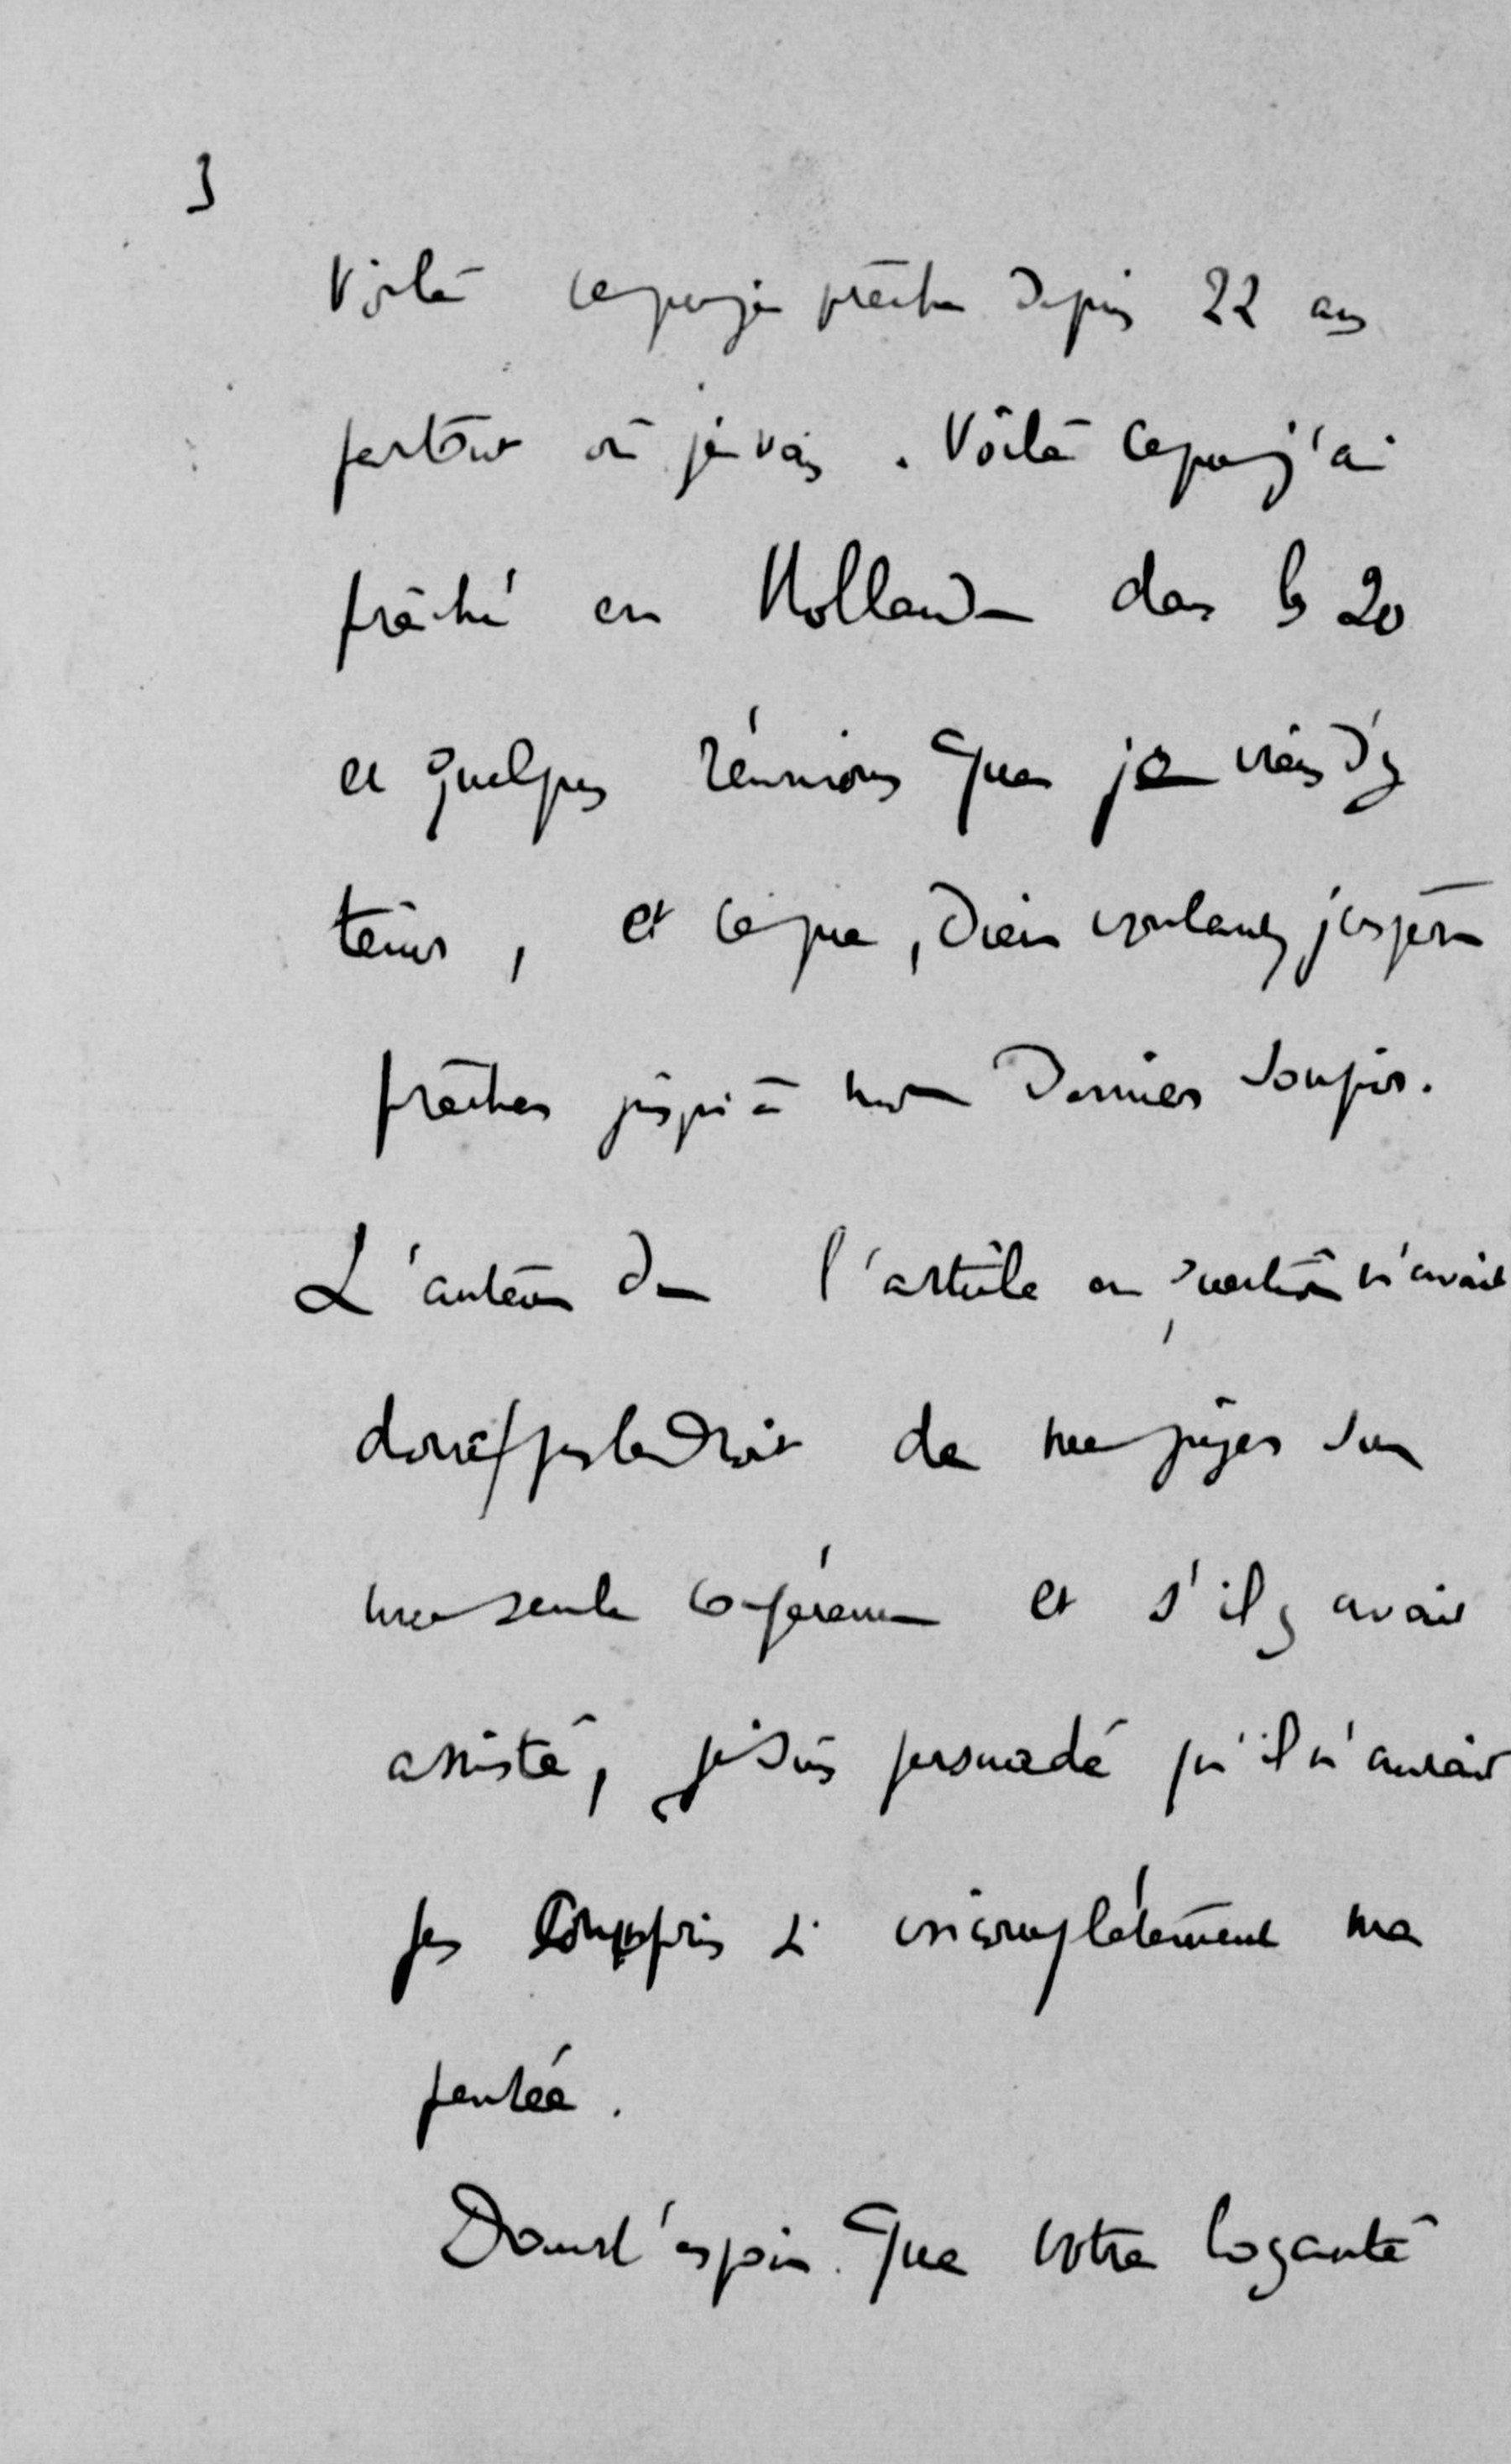 3
Voilà ce que je prêche depuis 22 ans
partout où je vais. Voilà ce que j'ai
prêché en Hollande dans les 20
et quelques réunions que je viens d'y
tenir, et ce que, Dieu voulant, j'espère
prêcher jusqu'à mon dernier soupir.
L'auteur de l'article en question n'avait
donc pas le droit de me juger sur
une seule conférence et s'il y avait
assisté, je suis persuadé qu'il n'aurait
pas compris si incomplètement ma
pensée.
Dans l'espoir que votre loyauté